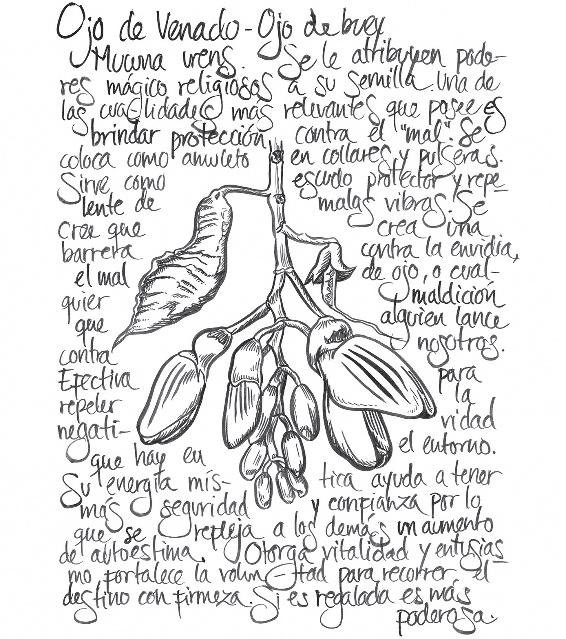 Ojo de Venado - Ojo de buey
Mucuna urens. Se le atribuyen pode-
res mágico religiosos a su semilla. Una de
las cualidades más relevantes que posee es
brindar protección contra el "mal". Se
coloca como amuleto en collares y pulseras.
Sirve como escudo protector y repe-
lente de malas vibras. Se
cree que crea una
barrera contra la envidia,
el mal de ojo, o cual-
quier maldición
que alguien lance
contra nosotros.
Efectiva para
repeler la
negati- vidad
que hay en el entorno.
Su energía mís- tica ayuda a tener
más seguridad y confianza por lo
que se refleja a los demás un aumento
de autoestima. Otorga vitalidad y entusias-
mo fortalece la voluntad para recorrer el
destino con firmeza. Si es regalada es más
poderosa.